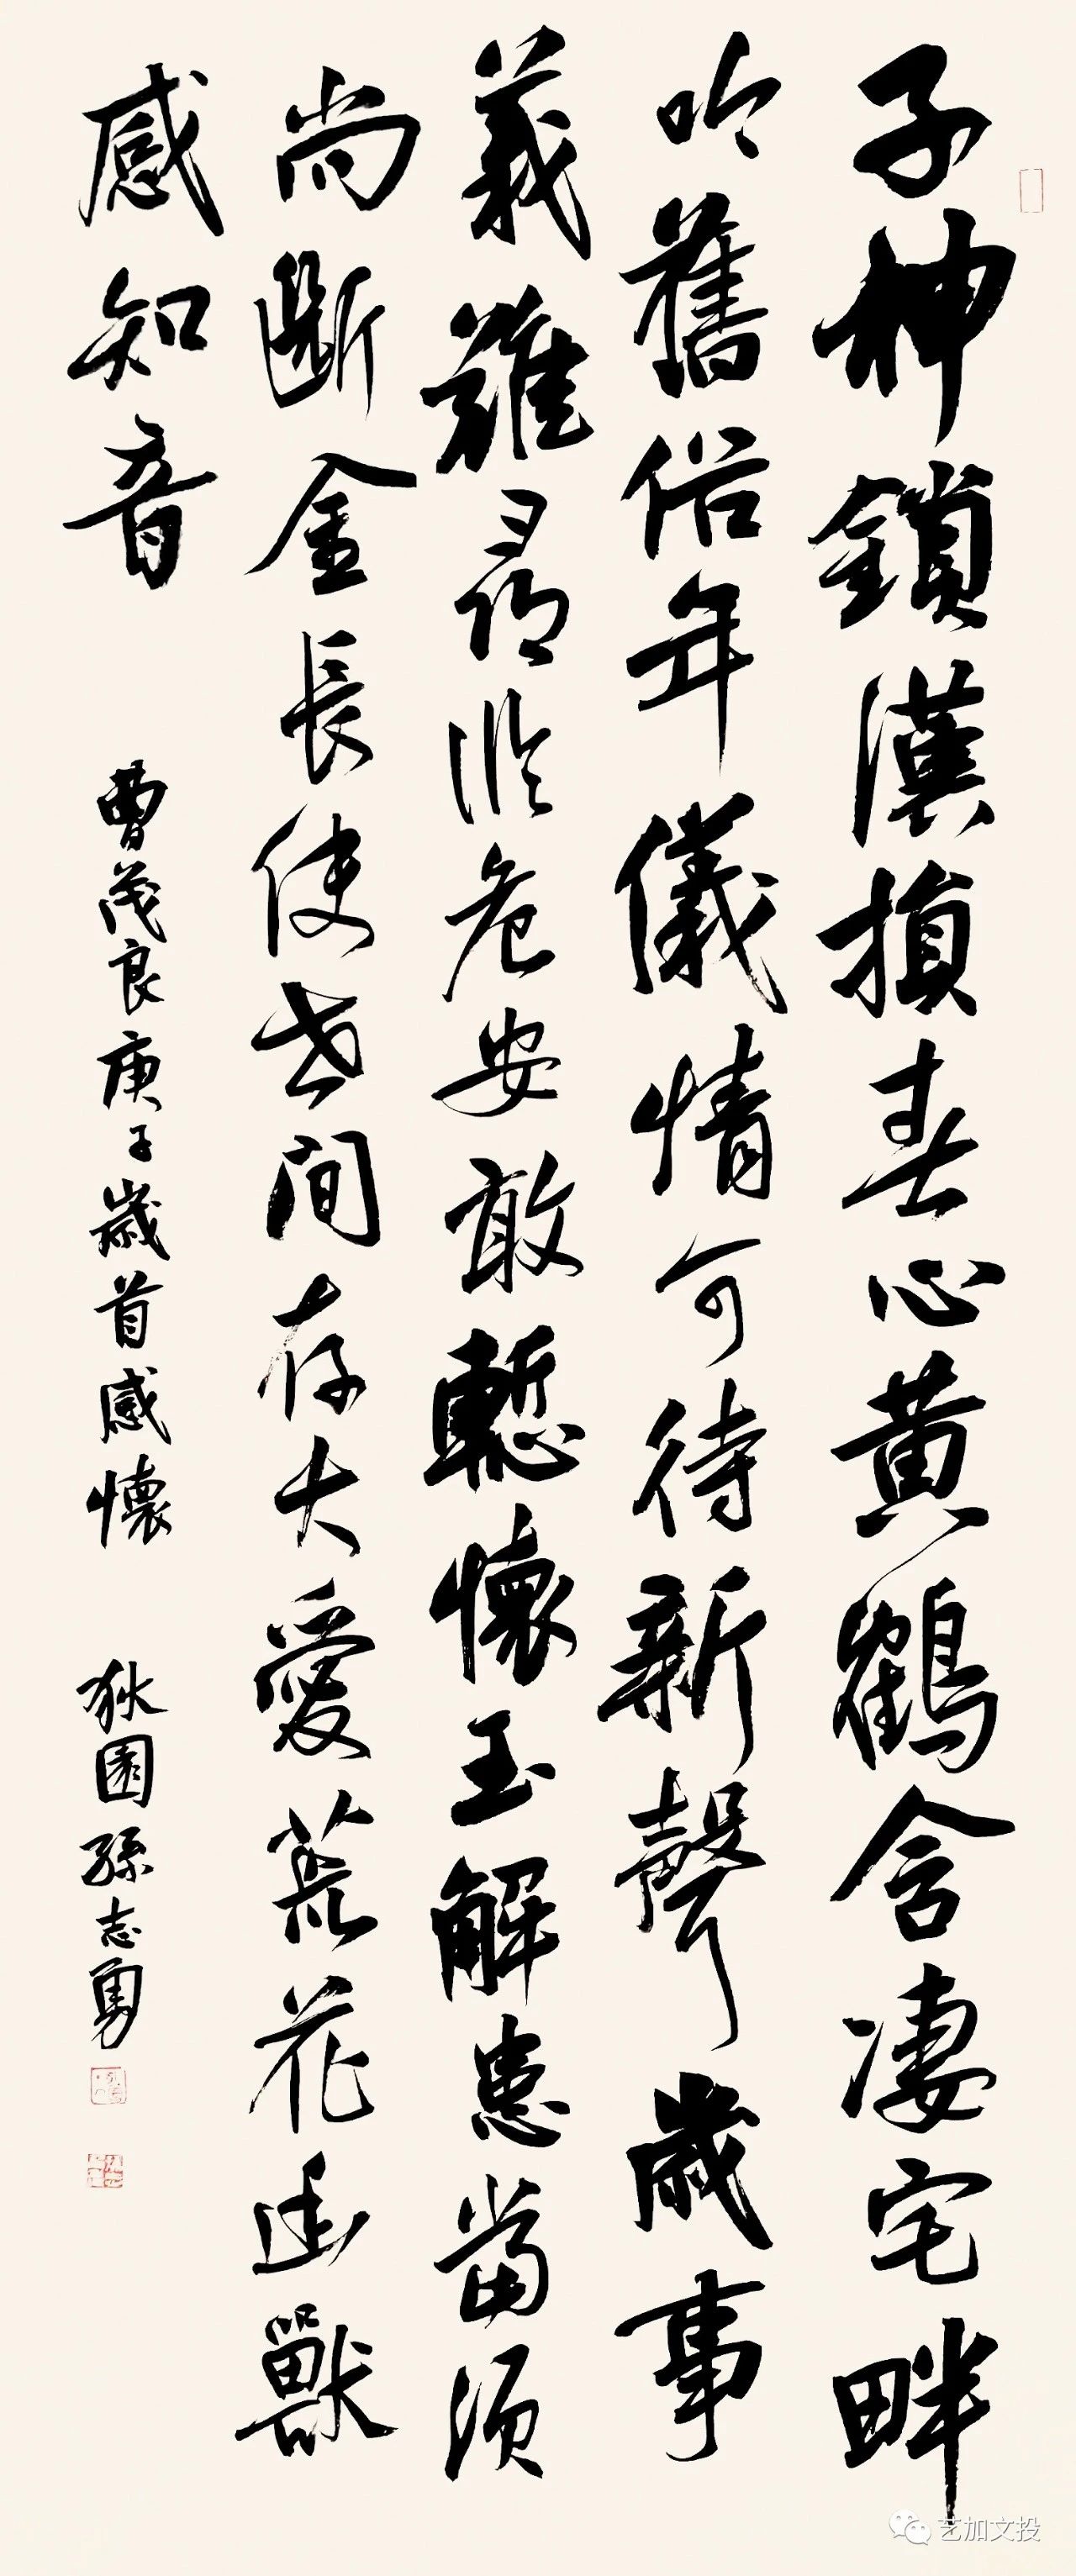 子神鎖漢損春心黄鶴含凄宅畔
吟舊俗年儀情可待新聲歲事
義難尋臨危安敢慙懷玉解患當須
尚斷金長使世間存大愛荒花幽獸
感知音
曹茂良庚子歲首感懷 狄園孫志勇
艺加文投